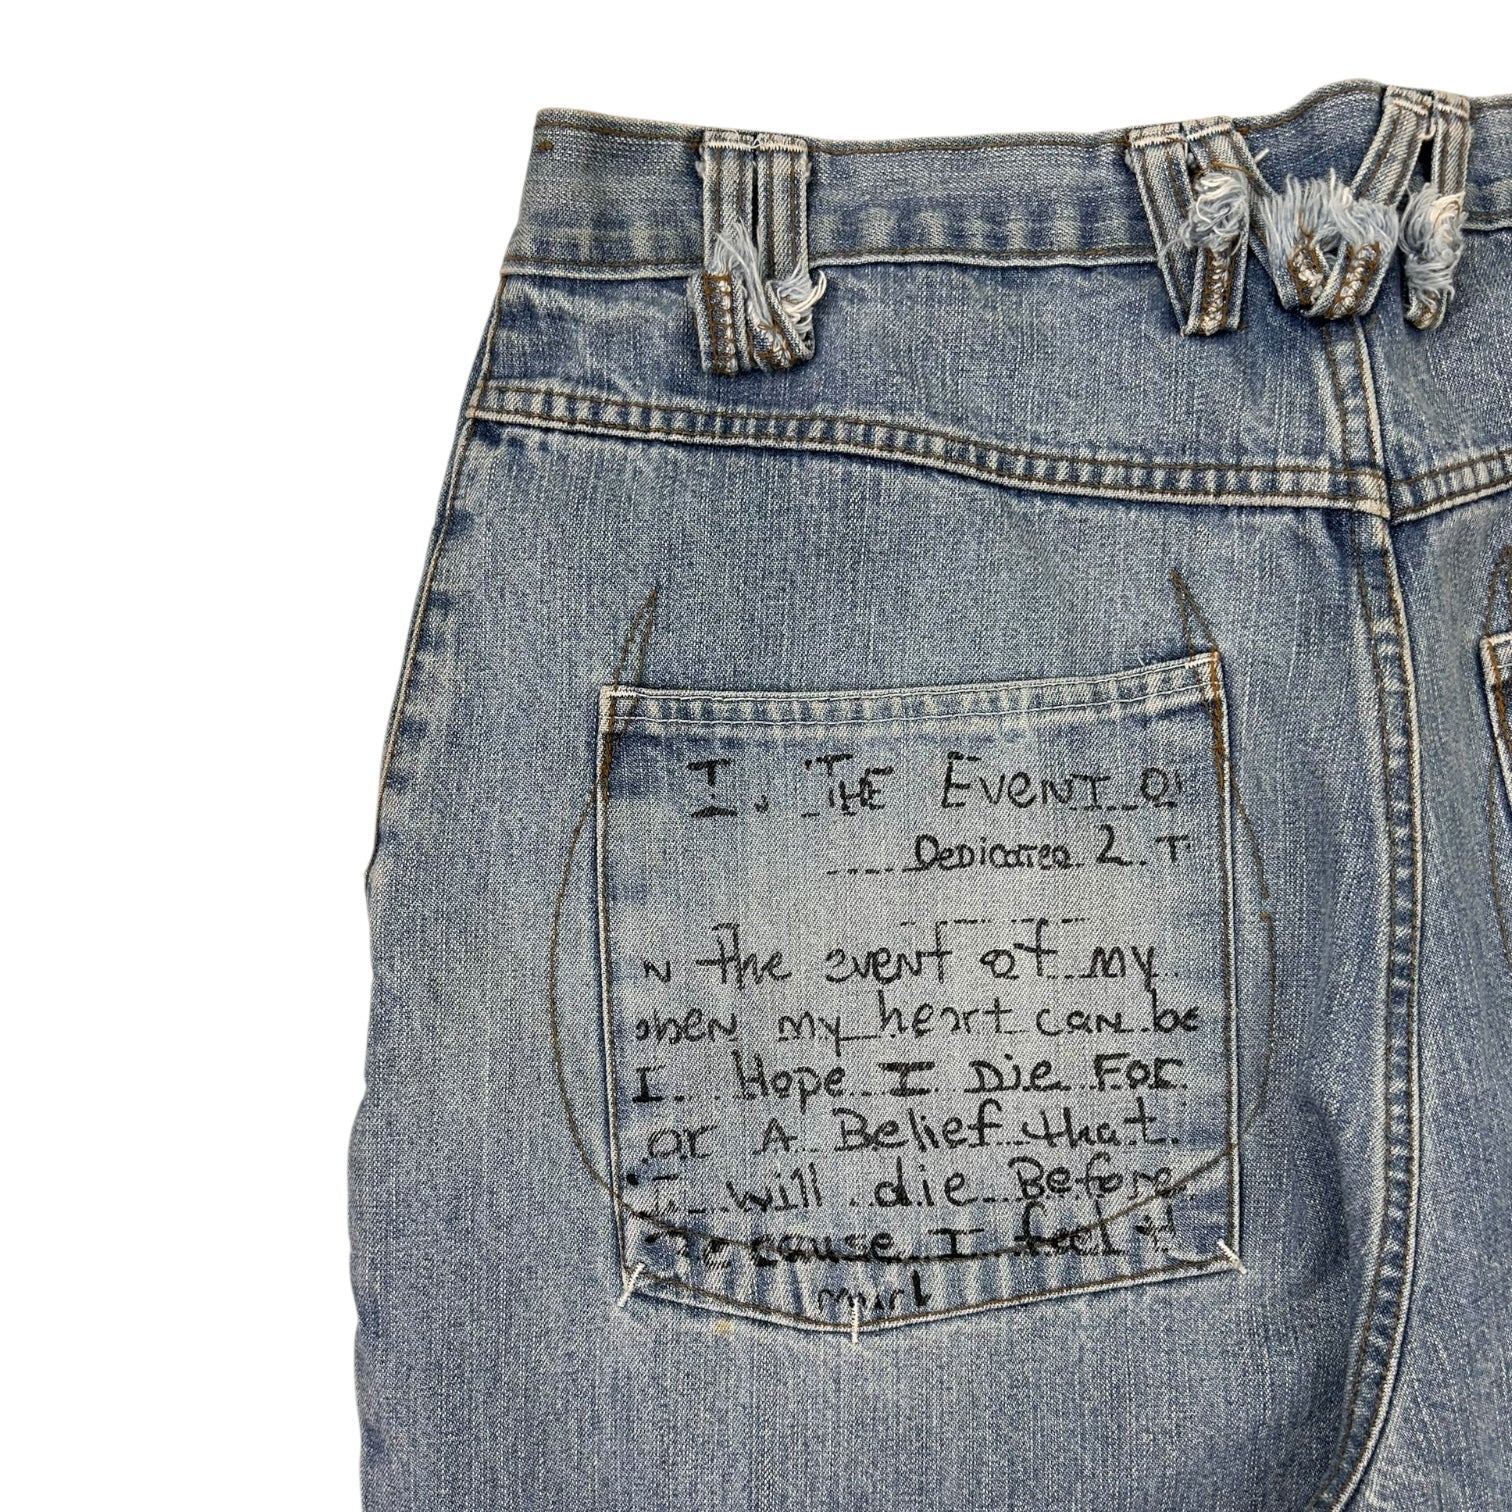 I. THE EVENT O
DeDicateD 2 T
N the event of my
when my heart can be
I Hope I Die For
or A Belief that
I will die Before
Because I feel it